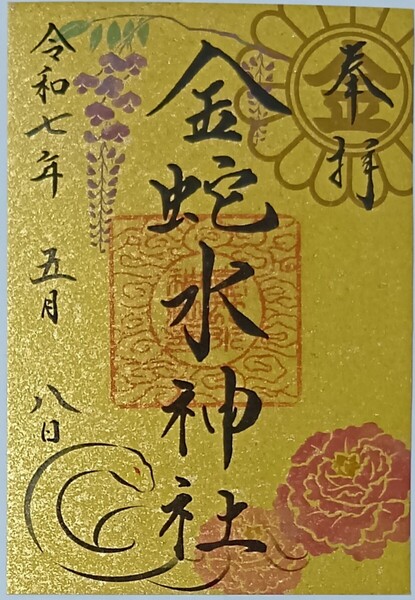 奉拝
金
金蛇水神社
令和七年 五月 八日